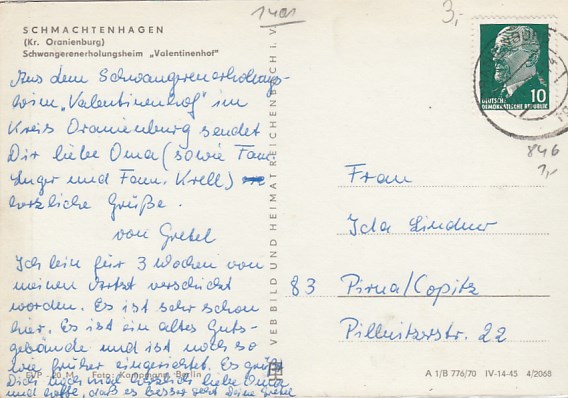 SCHMACHTENHAGEN
(Kr. Oranienburg)
Schwangerenerholungsheim „Valentinenhof"
Aus dem Schwangerenerholungs-
heim „Valentinenhof" im
Kreis Oranienburg sendet
Dir liebe Oma (sowie Fam.
Unger und Fam. Krell)
herzliche Grüße.
von Gretel
Ich bin für 3 Wochen von
meinen Artzt verschickt
worden. Es ist sehr schön
hier. Es ist ein altes Guts-
gebäude und ist noch so
wie früher eingerichtet. Es grüßt
Dich noch mal herzlich liebe Oma
und hofft, daß es besser geht Deine Gretel
EVP -20 M Foto: Kampmann, Berlin
VEB BILD UND HEIMAT REICHENBACH I. V.
1401
3,-
DEUTSCHE
DEMOKRATISCHE REPUBLIK
10
846
1,-
Frau
Ida Lindner
83 Pirna/Copitz
Pillnitzerstr. 22
A 1/B 776/70 IV-14-45 4/2068